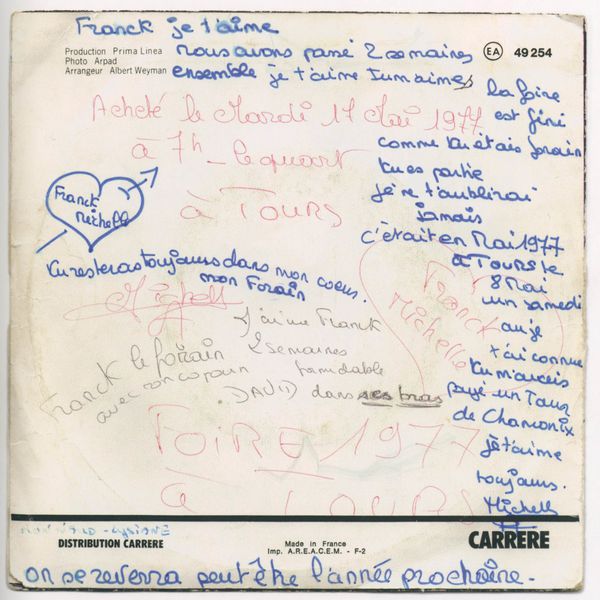 Franck je t'aime
Production Prima Linea
Photo Arpad
Arrangeur Albert Weyman
nous avons passé 2 semaines
ensemble je t'aime tu m'aimes
EA 49 254
la foire
est fini
comme tu étais forain
tu es partie
je ne t'oublirai
jamais
c'était en Mai 1977
à TOURS le
8 Mai
un samedi
où je
t'ai connue
tu m'avais
payé un Tour
de Chamonix
je t'aime
toujours.
Michelle
Acheté le Mardi 17 Mai 1977
à 7h - le quart
à TOURS
Franck
Michelle
tu resteras toujours dans mon coeur.
mon Forain
Franck
Michelle
J'aime Franck
2 semaines
formidable
Franck le forain
avec son copain
DAVID dans ses bras
FOIRE 1977
à TOURS
DISTRIBUTION CARRERE
Made in France
Imp. A.R.E.A.C.E.M. - F-2
CARRERE
on se reverra peut être l'année prochaine.